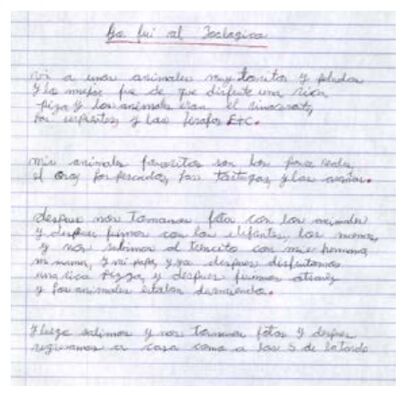 Yo fui al Zoologico
vi a unos animales muy bonitos y peludos
y lo mejor fue de que disfrute una rica
pizza y los animales eran el rinoceronte,
las serpientes y las jirafas ETC.
mis animales favoritos son los pavo reales,
el oso, los pescados, las tortugas, y las
despues nos tomamos fotos con los animales
y despues fuimos con los elefantes, los monos,
y nos subimos al trencito con mis hermanos,
mi mama, y mi papa, y ya despues disfrutamos
una rica pizza, y despues fuimos
y los animales estaban durmiendo.
y luego salimos y nos tomamos fotos y despues
regresamos a casa como a las 5 de la tarde